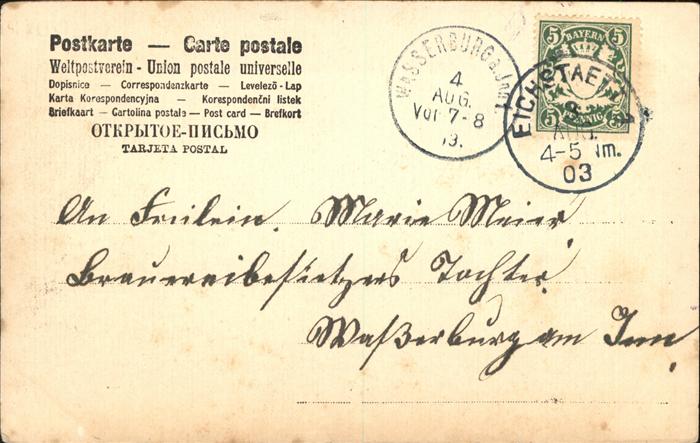 Postkarte — Carte postale
Weltpostverein - Union postale universelle
Dopisnice — Correspondenzkarte — Levelező-Lap
Karta Korespondencyjna — Korespondenční listek
Briefkaart — Cartolina postale — Post card — Brefkort
ОТКРЫТОЕ-ПИСЬМО
TARJETA POSTAL
WASSERBURG a. Inn
4
AUG.
Vor 7-8
5 BAYERN 5
5 PFENNIG 5
EICHSTAETT
AUG.
4-5 Nm.
03
An Freilein. Marie Meier,
Brauereibesietzers Tochter
Waßerburg am Inn